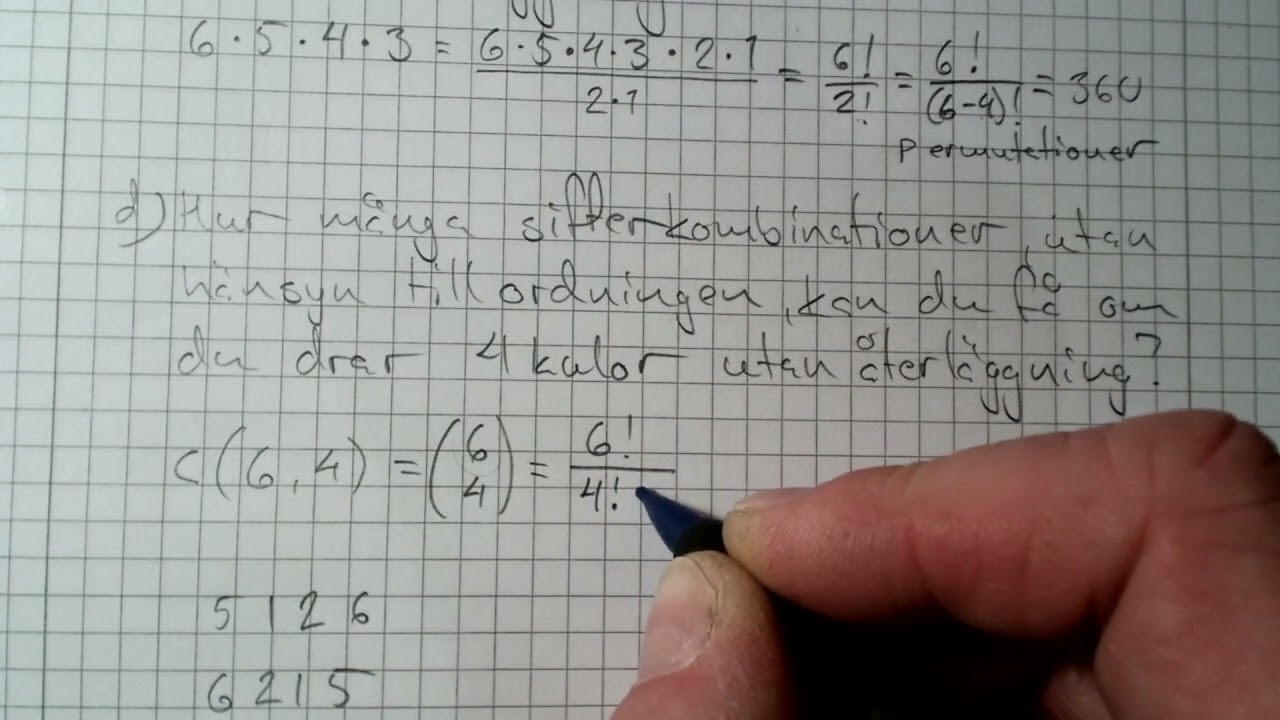 6·5·4·3 = 6·5·4·3·2·1 / 2·1 = 6! / 2! = 6! / (6-4)! = 360
permutationer
d) Hur många sifferkombinationer, utan
hänsyn till ordningen, kan du få om
du drar 4 kulor utan återläggning?
C(6,4) = (6 4) = 6! / 4!
5 1 2 6
6 2 1 5